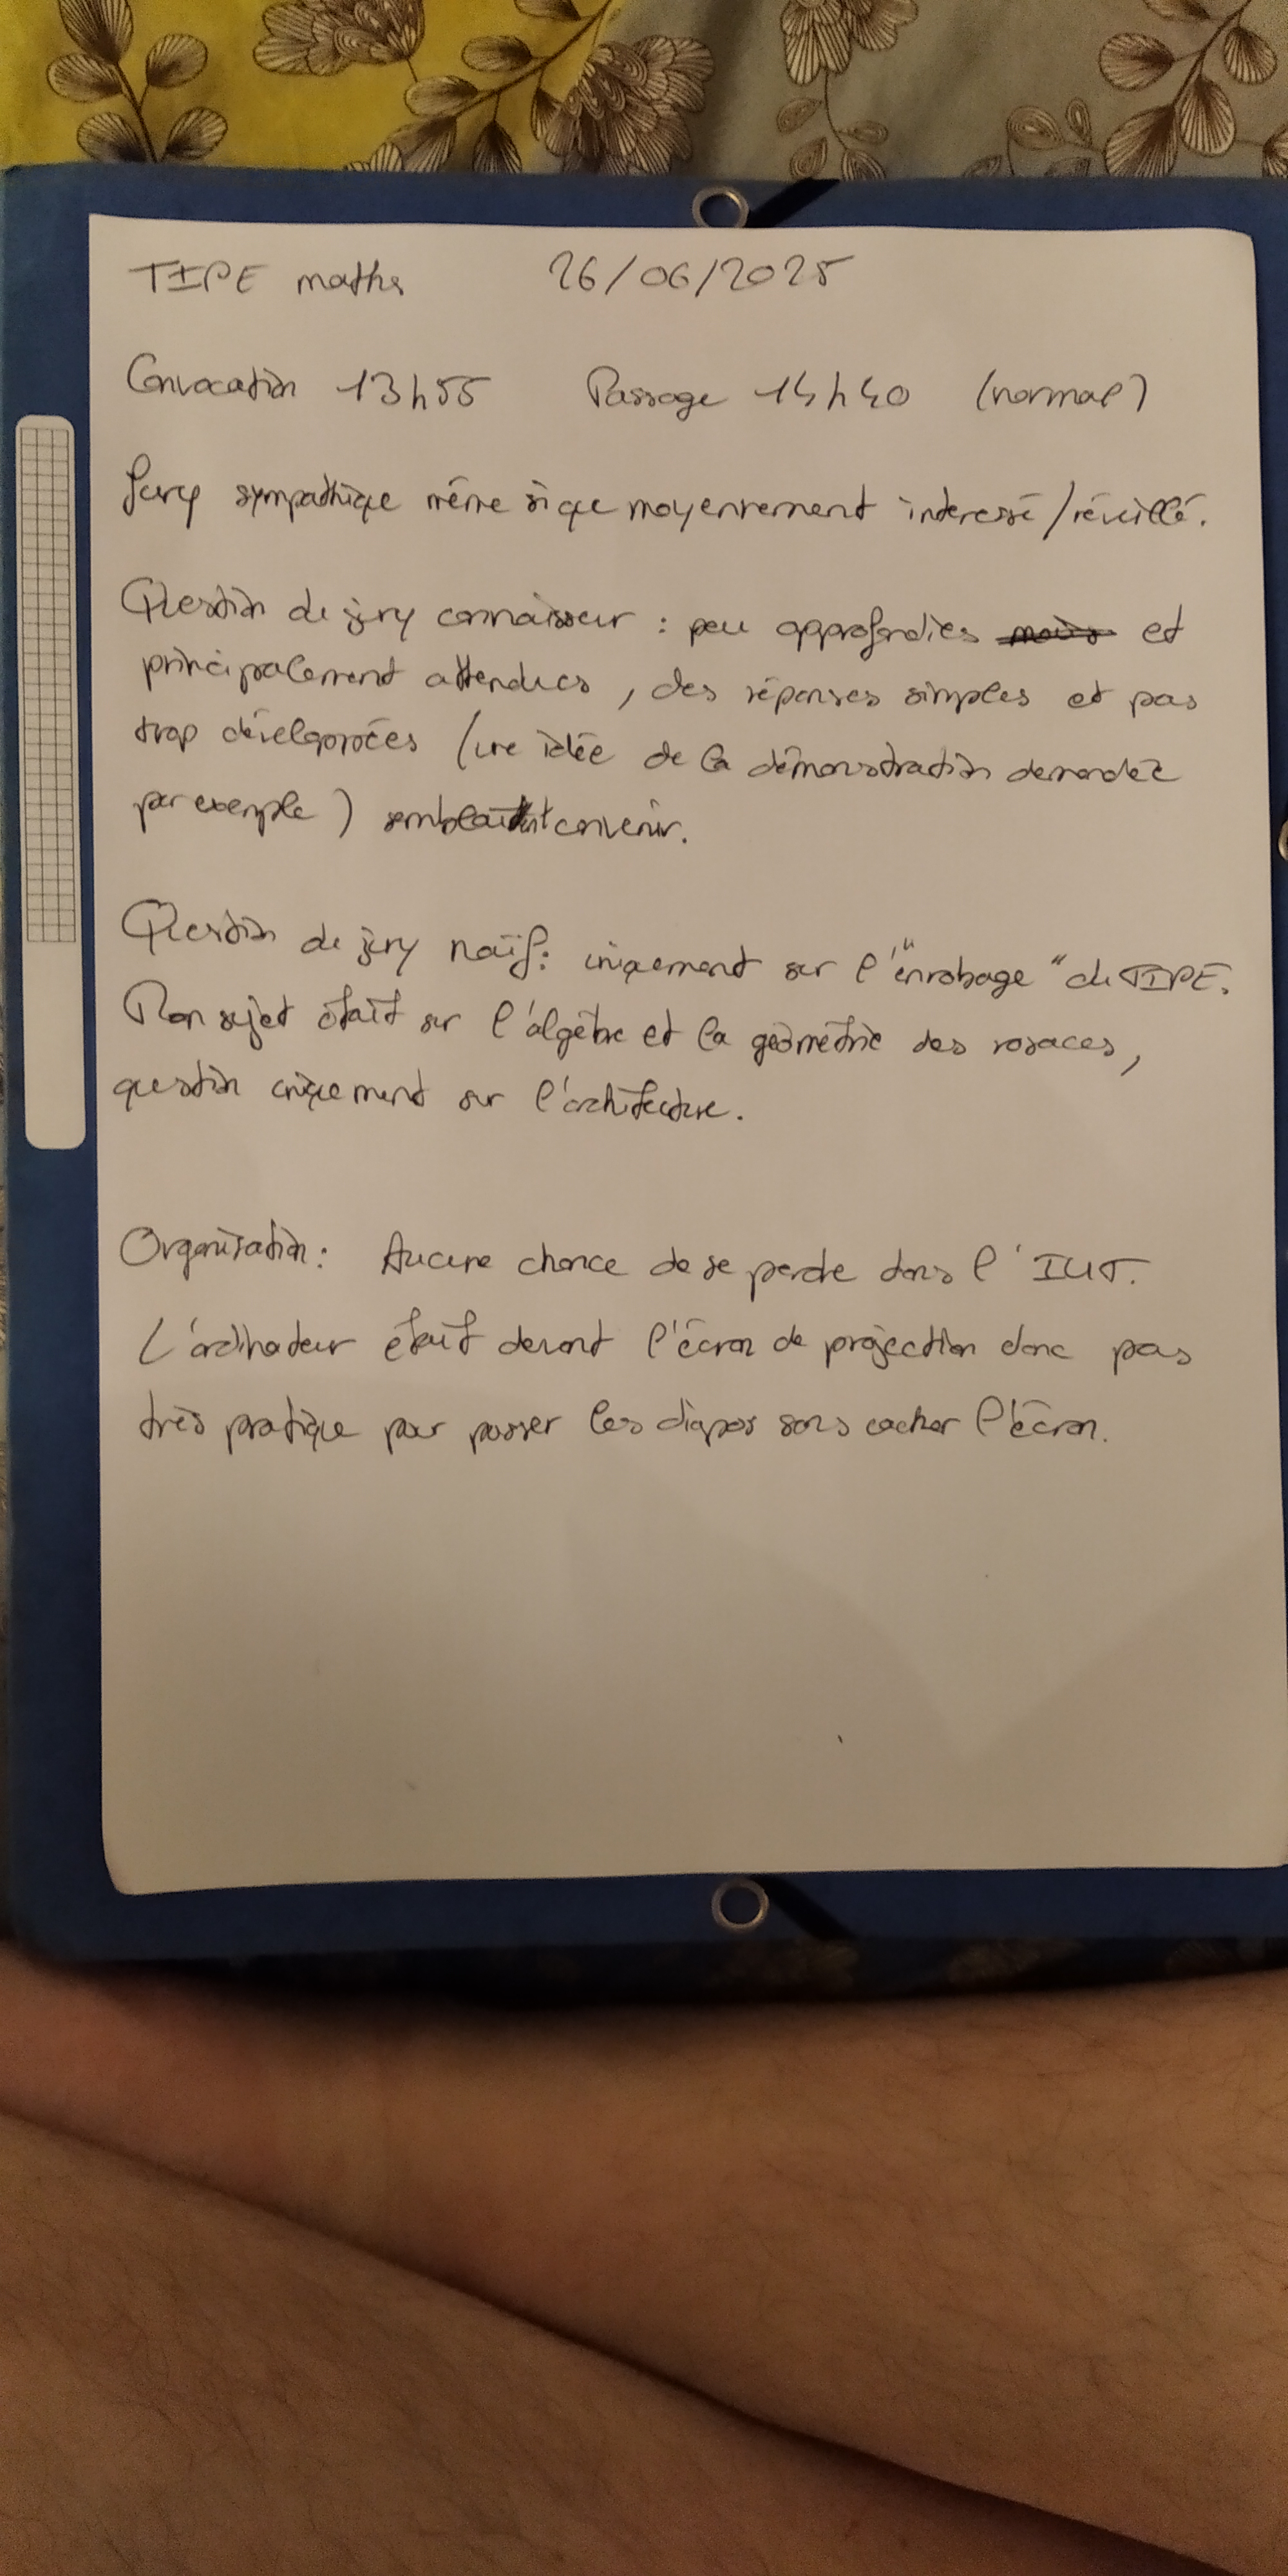 TIPE maths 26/06/2025
Convocation 13h55 Passage 14h40 (normal)
Jury sympathique même si que moyennement interessé/réveillé.
Question de jury connaisseur : peu approfondies mais et
principalement attendues, des réponses simples et pas
trop développées (une idée de la démonstration demandée
par exemple) semblaient convenir.
Question de jury naïf : uniquement sur l'"enrobage" du TIPE.
Mon sujet était sur l'algèbre et la géométrie des rosaces,
question uniquement sur l'architecture.
Organisation : Aucune chance de se perdre dans l'IUT.
L'ordinateur était devant l'écran de projection donc pas
très pratique pour passer les diapos sans cacher l'écran.